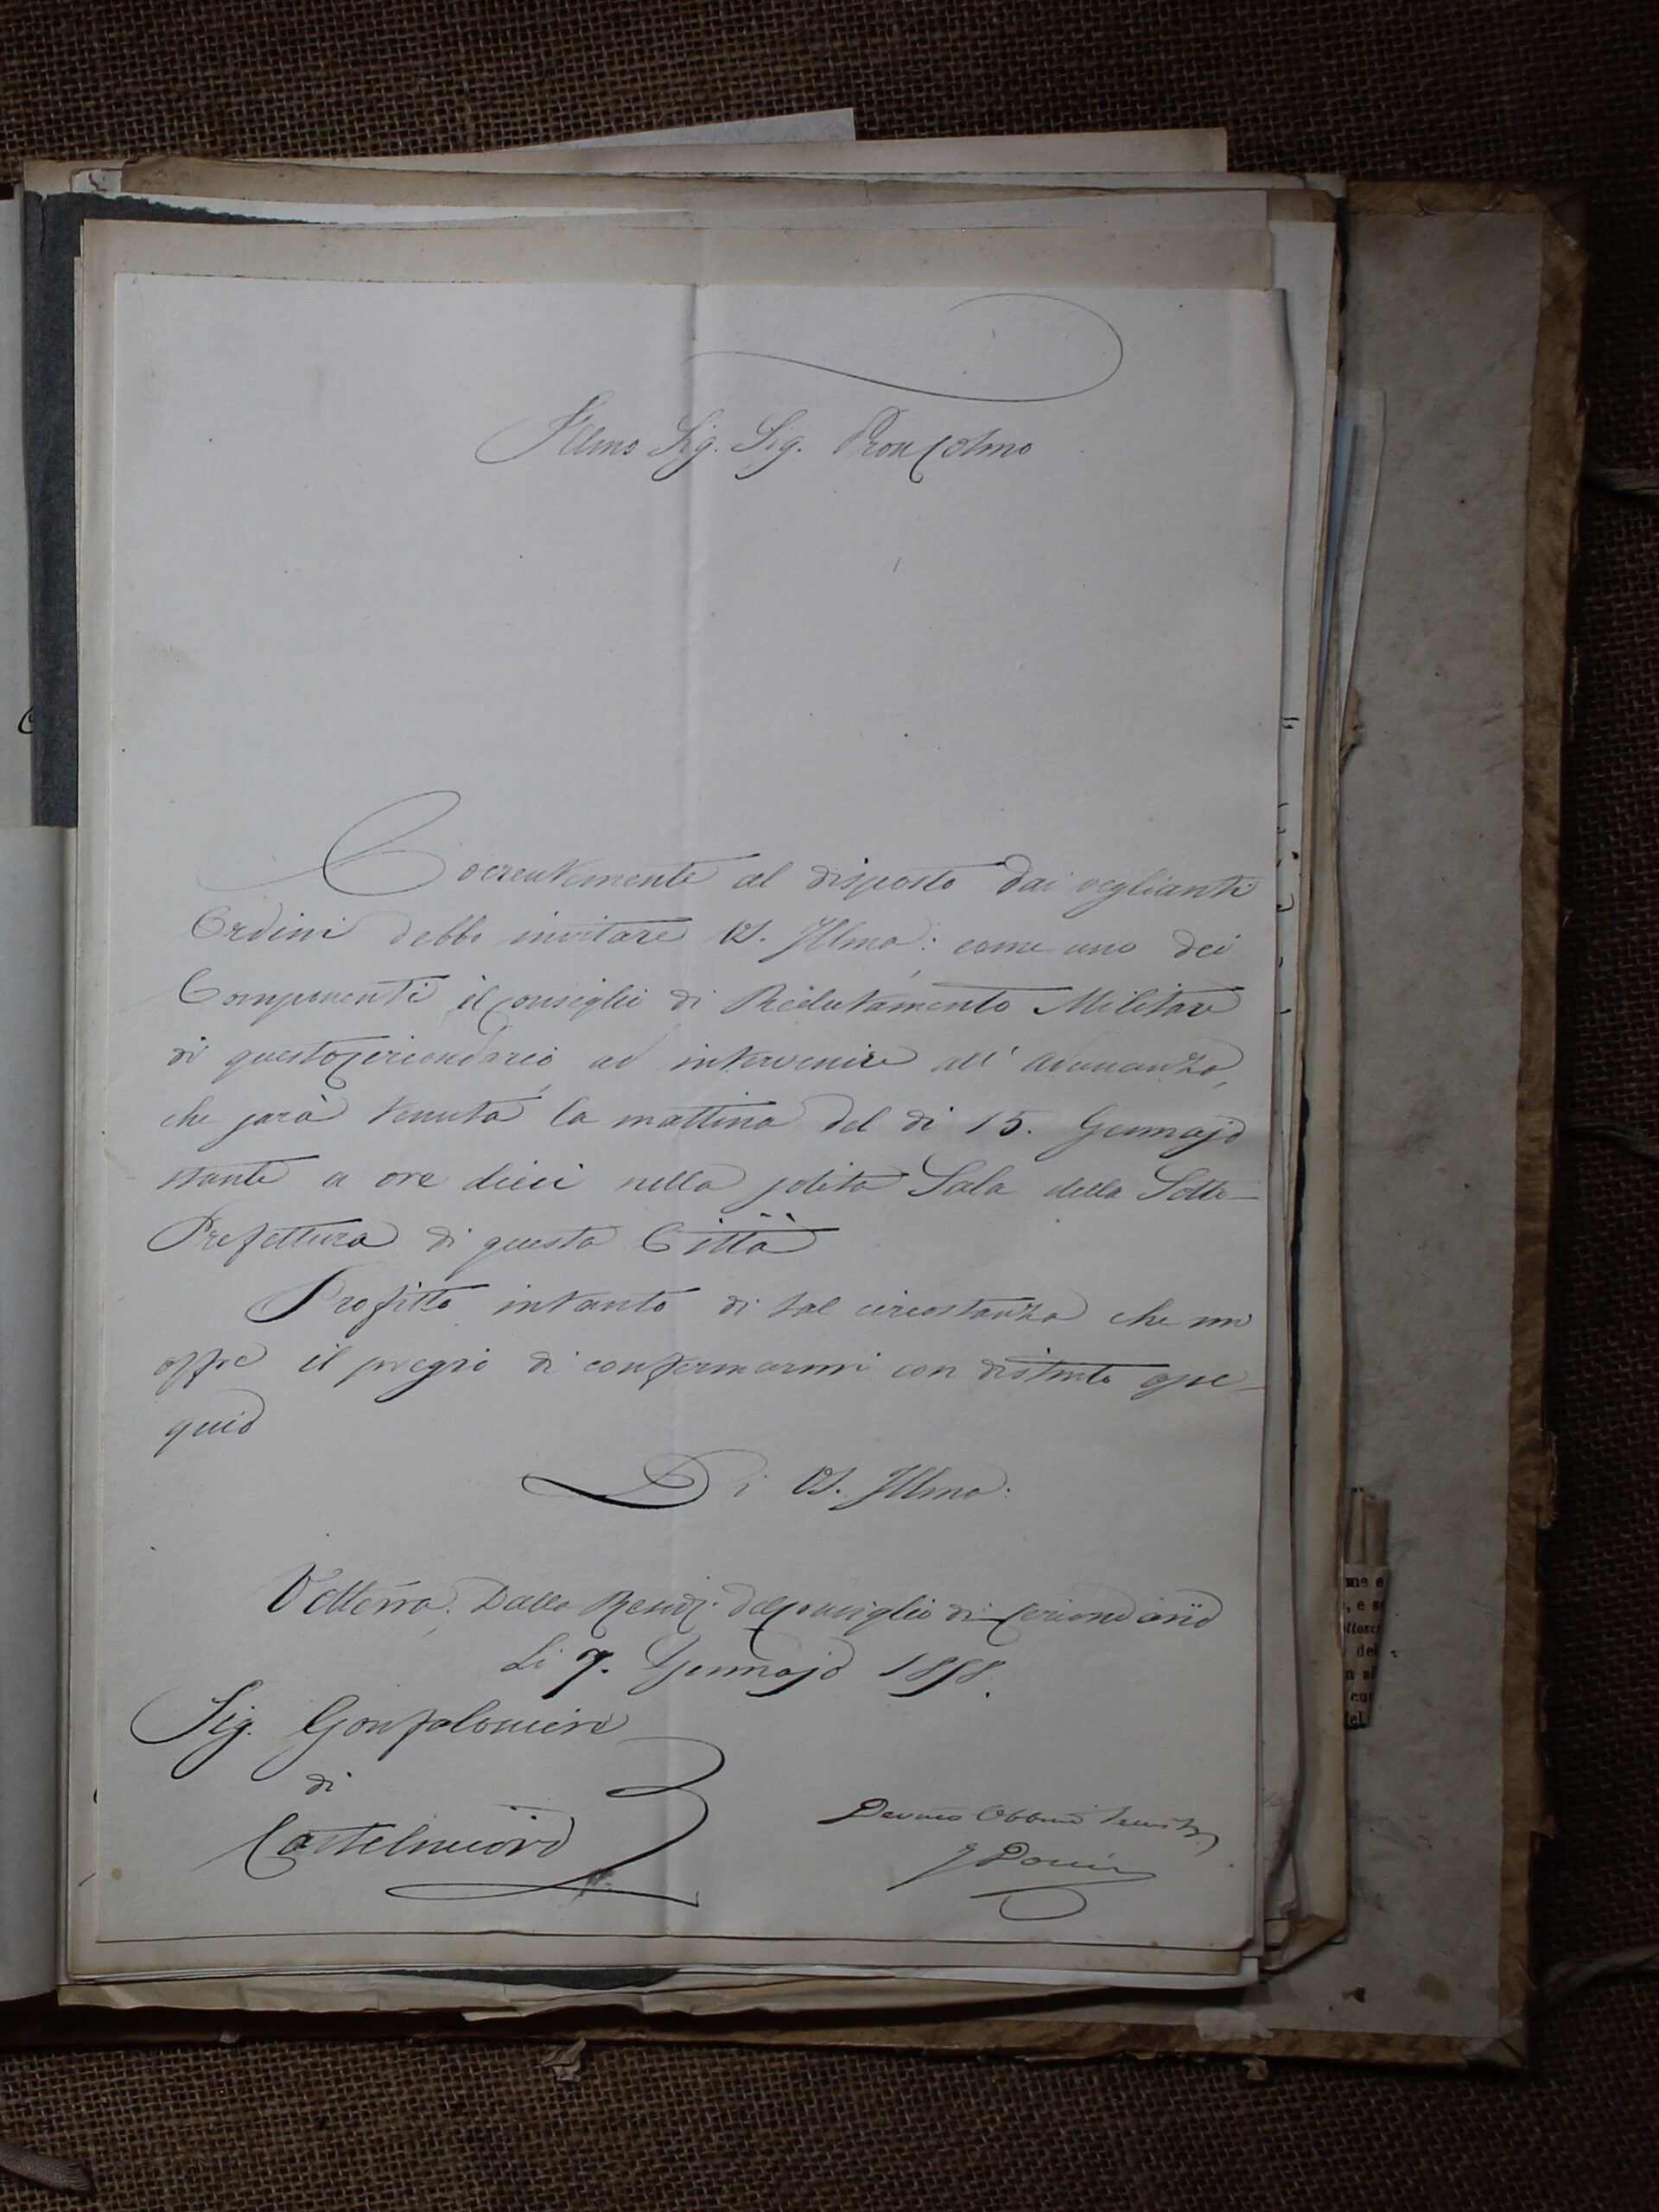 Illmo Sig. Sig. Pron Colmo
Coerentemente al disposto dai veglianti
Ordini debbo invitare VS. Illma: come uno dei
Componenti il Consiglio di Reclutamento Militare
di questo Circondario, ad intervenire all'Adunanza,
che sarà tenuta la mattina del di 15. Gennajo
stante a ore dieci nella solita Sala della Sotto-
Prefettura di questa Città
Profitto intanto di tal circostanza che mi
offre il pregio di confermarmi con distinto osse-
quio
Di VS. Illma:
Volterra, Dalla Resid: del Consiglio di Circondario
Li 7. Gennajo 1858.
Sig. Gonfaloniere
di
Castelnuovo
Devmo Obbmo